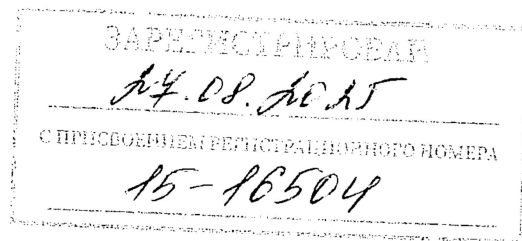 ЗАРЕГИСТРИРОВАН
27.08.2025
С ПРИСВОЕНИЕМ РЕГИСТРАЦИОННОГО НОМЕРА
15-16504